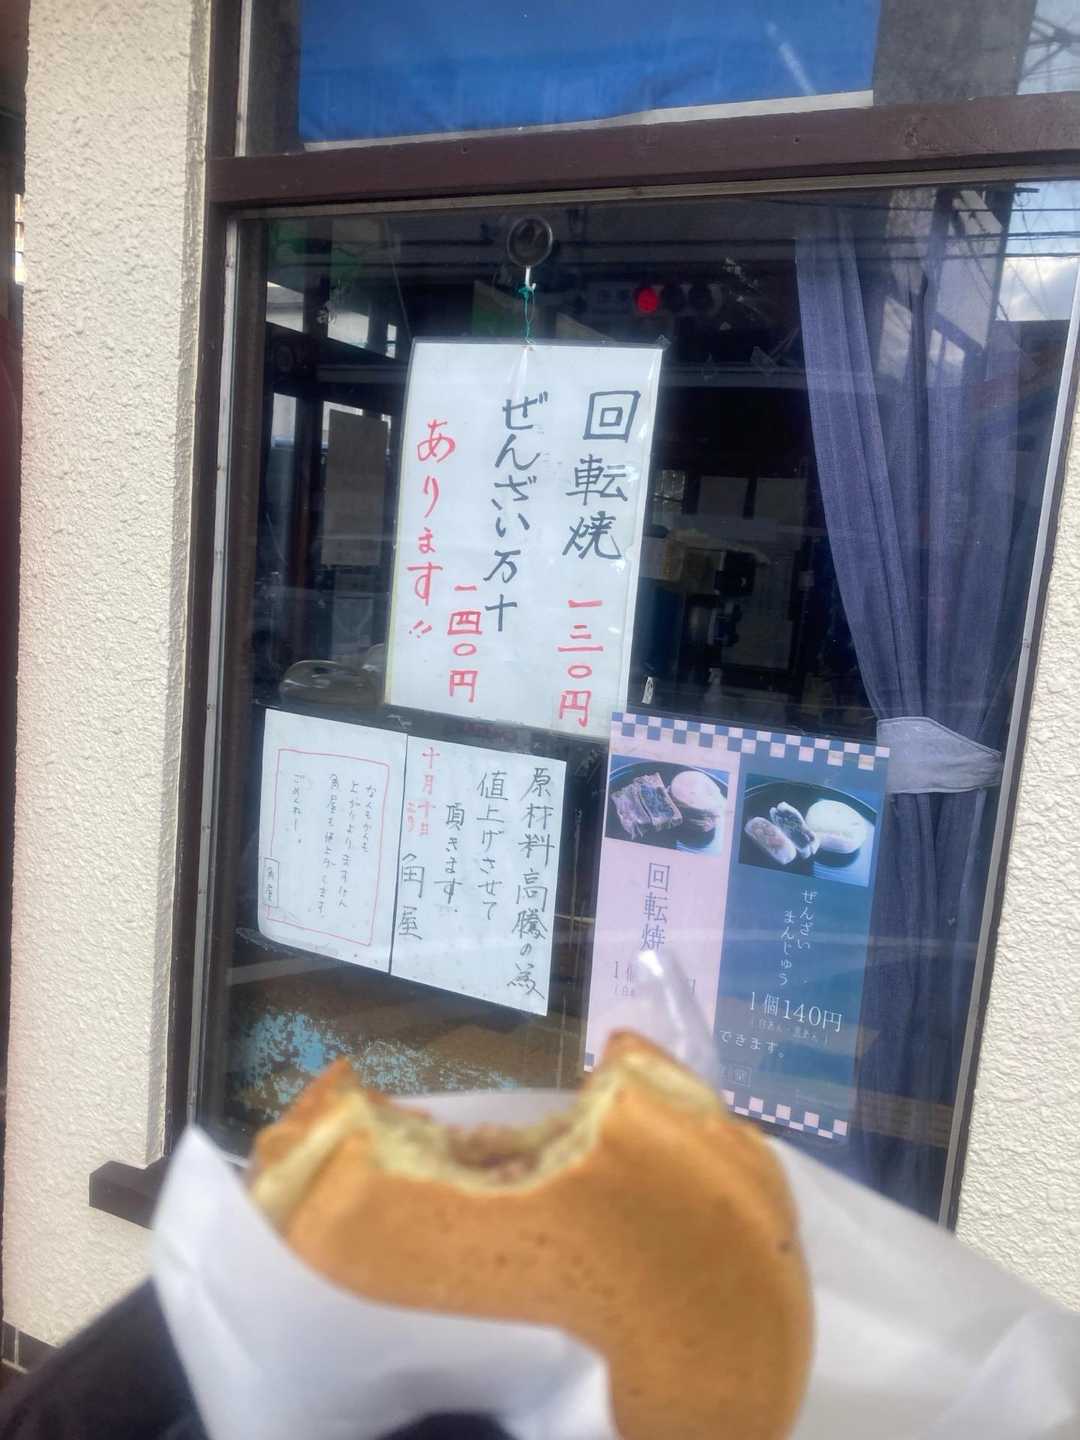 回転焼 一三〇円
ぜんざい万十 一四〇円
あります!!
原材料高騰の為
値上げさせて
頂きます
十月十日より
角屋
なんもかんも
上がりよりますけん
角屋も値上げします。
ごめんねー。
角屋
回転焼
1個
ぜんざい
まんじゅう
1個140円
(白あん・黒あん)
できます。